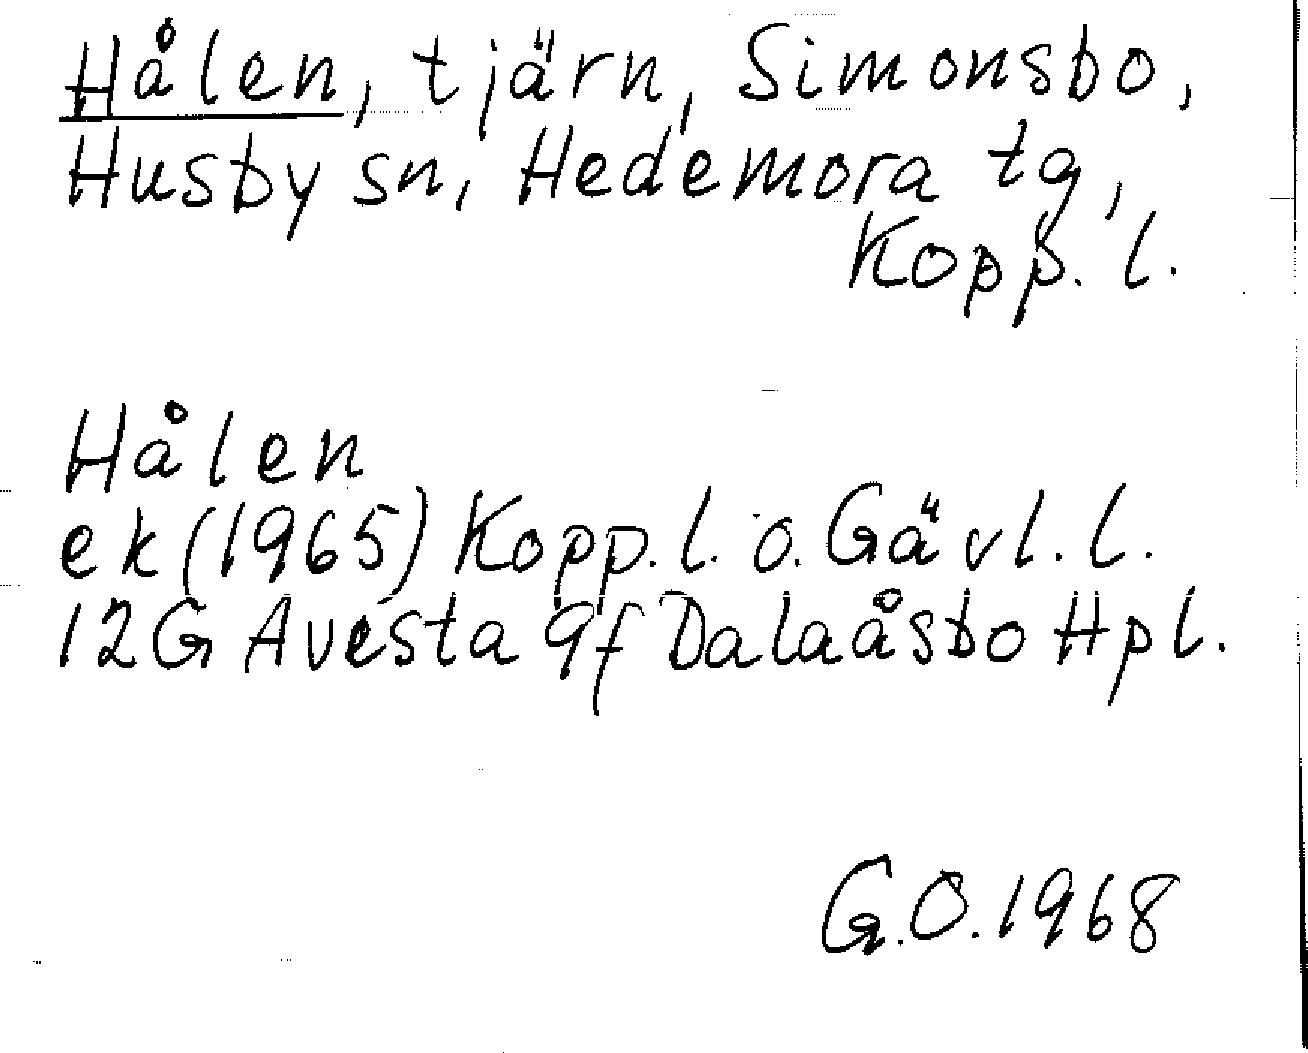 Hålen, tjärn, Simonsbo,
Husby sn, Hedemora tg,
Kopp. l.
Hålen
ek (1965) Kopp. l. o. Gävl. l.
12G Avesta 9f Dalaåsbo Hpl.
G.O. 1968